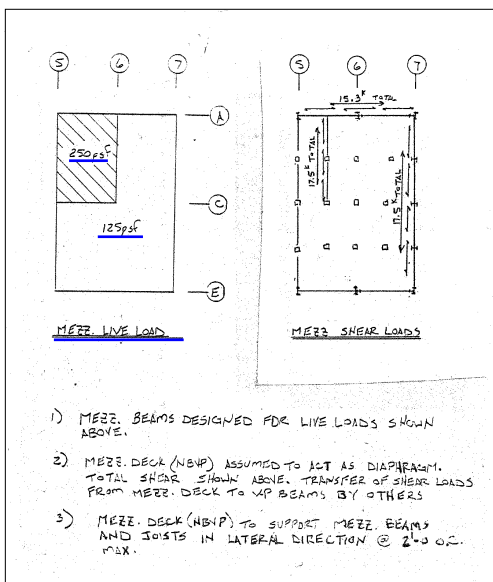 5 6 7
A
250psf
C
125psf
E
MEZZ. LIVE LOAD
5 6 7
15.3ᴷ TOTAL
17.5ᴷ TOTAL
17.5ᴷ TOTAL
MEZZ SHEAR LOADS
1) MEZZ. BEAMS DESIGNED FOR LIVE LOADS SHOWN
ABOVE.
2) MEZZ. DECK (NBVP) ASSUMED TO ACT AS DIAPHRAGM.
TOTAL SHEAR SHOWN ABOVE. TRANSFER OF SHEAR LOADS
FROM MEZZ. DECK TO VP BEAMS BY OTHERS
3) MEZZ. DECK (NBVP) TO SUPPORT MEZZ. BEAMS
AND JOISTS IN LATERAL DIRECTION @ 2'-0 O.C.
MAX.